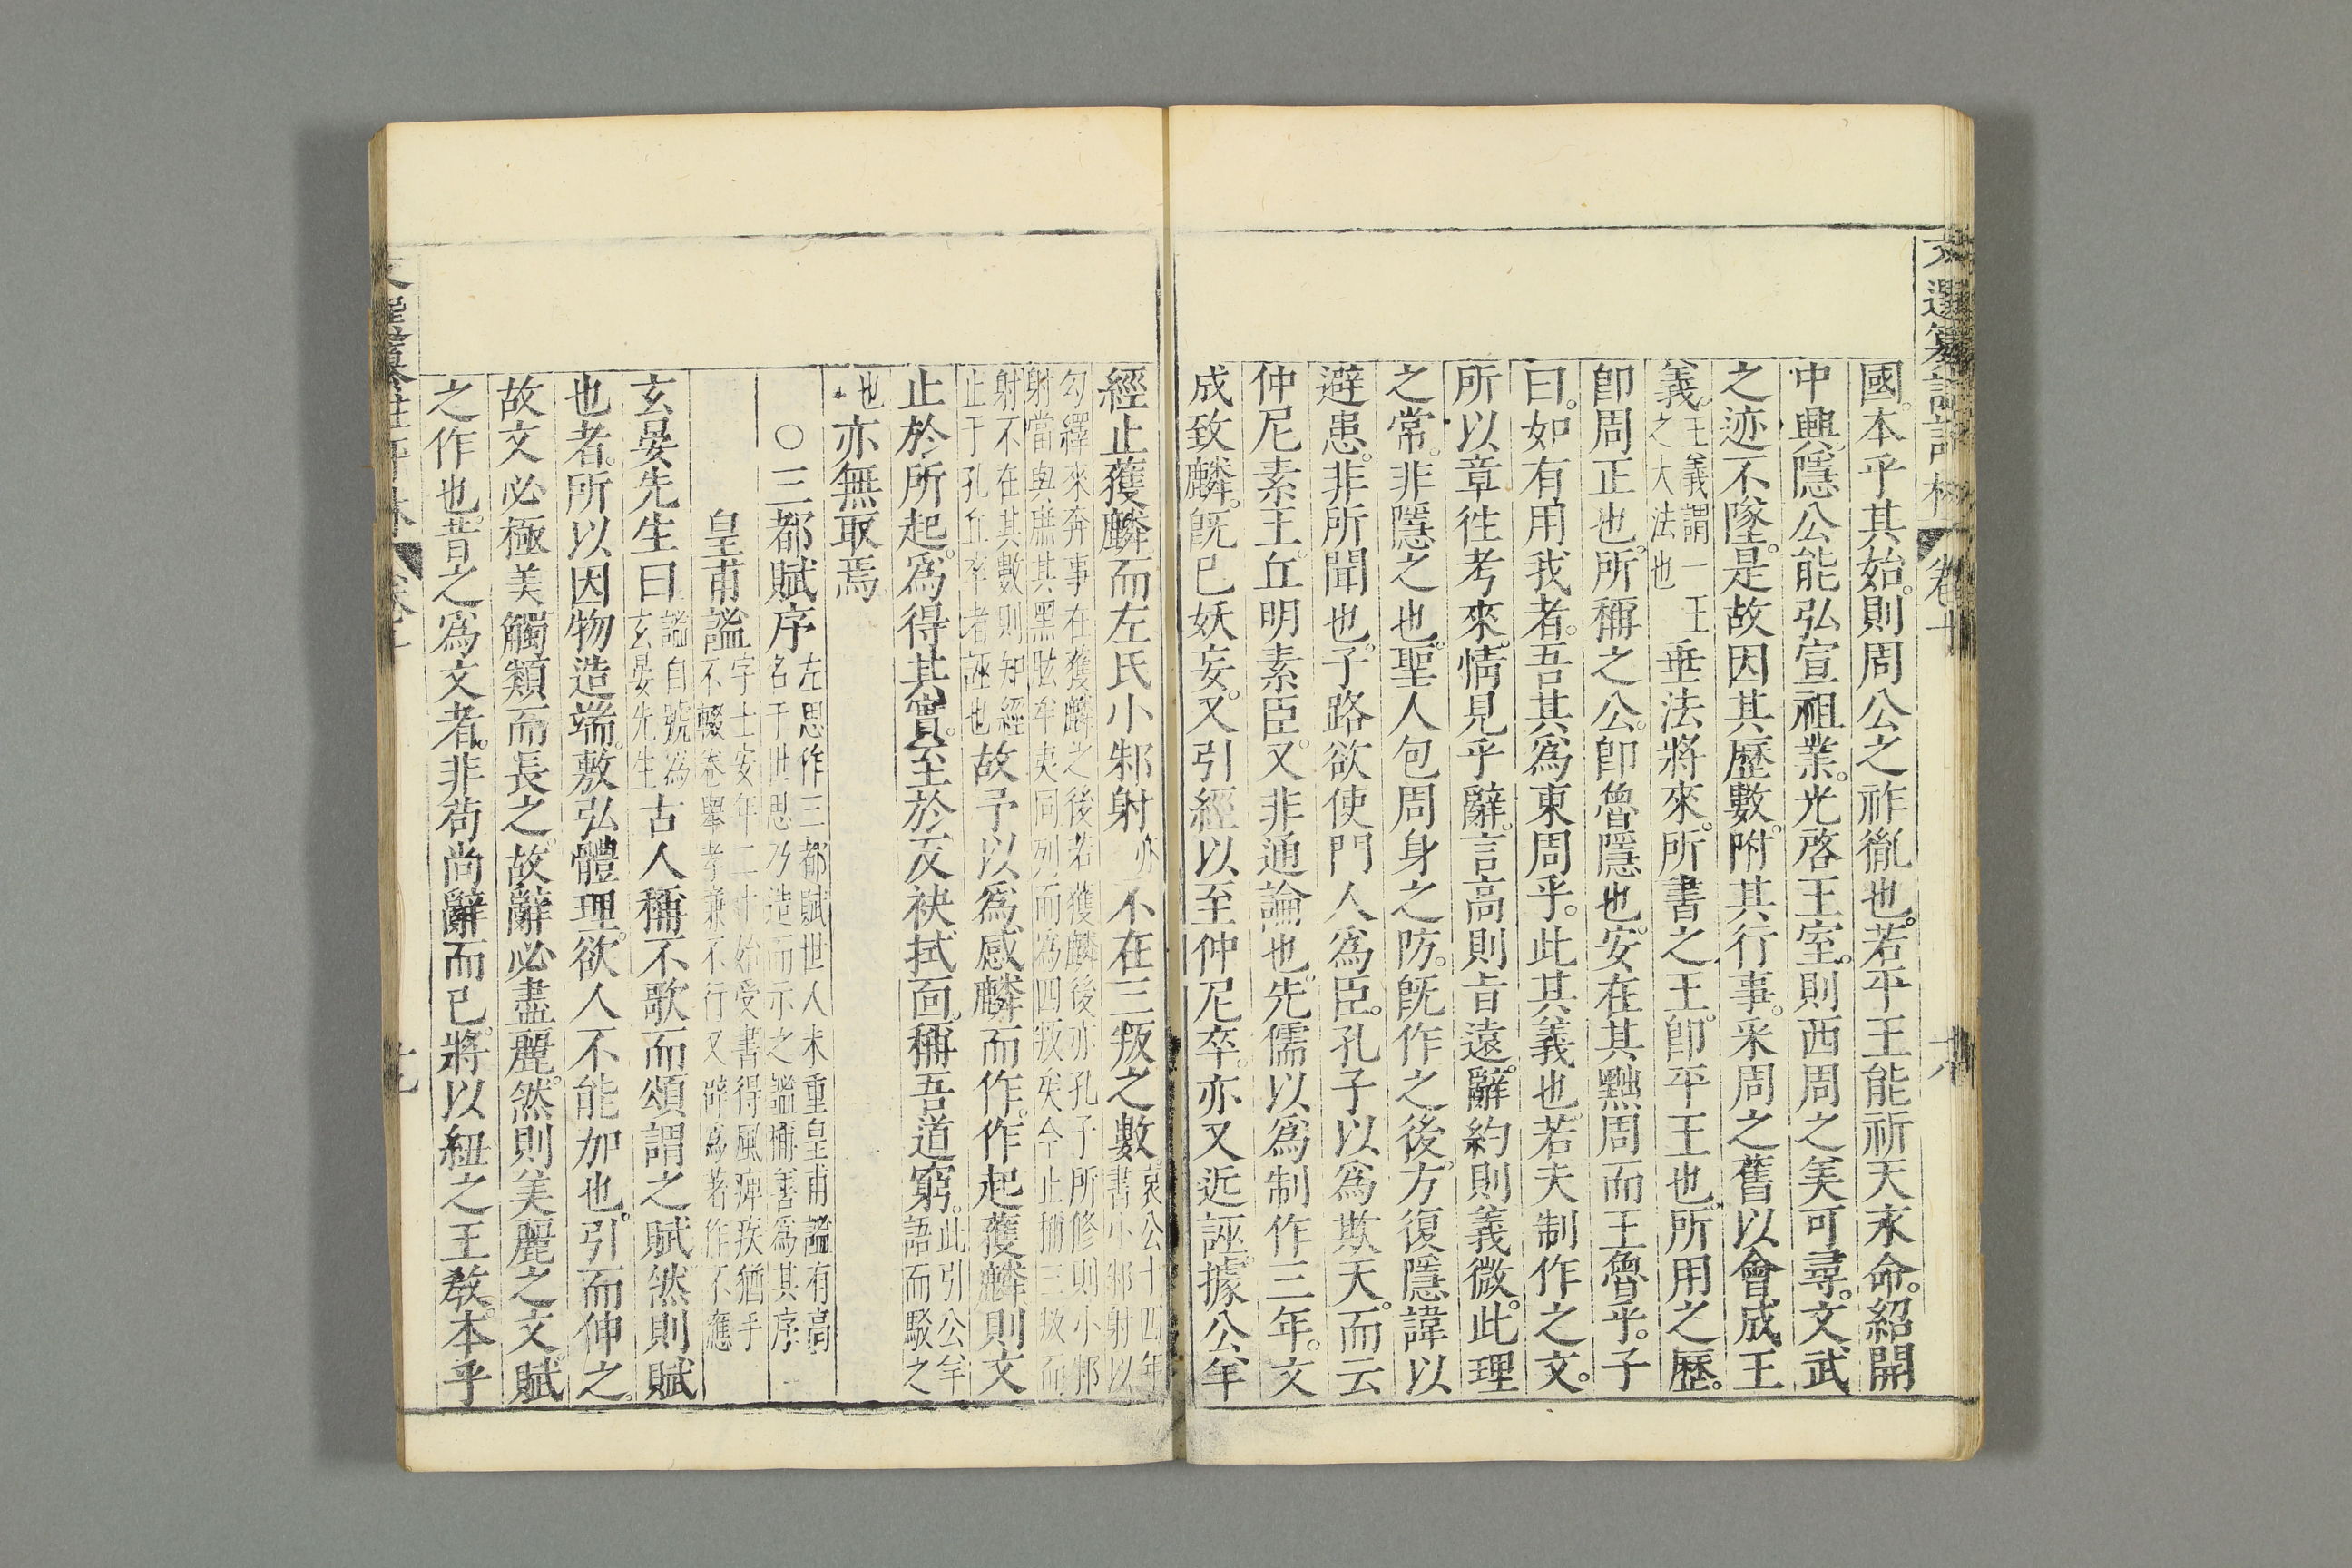 國本乎其始則周公之祚胤也若平王能祈天永命紹開
中興隱公能弘宣祖業光啓王室則西周之美可尋文武
之迹不墜是故因其歷數附其行事采周之舊以會成王
義王義謂一王之大法也垂法將來所書之王卽平王也所用之歷
卽周正也所稱之公卽魯隱也安在其黜周而王魯乎子
曰如有用我者吾其爲東周乎此其義也若夫制作之文
所以章徃考來情見乎辭言高則旨遠辭約則義微此理
之常非隱之也聖人包周身之防旣作之後方復隱諱以
避患非所聞也子路欲使門人爲臣孔子以爲欺天而云
仲尼素王丘明素臣又非通論也先儒以爲制作三年文
成致麟旣已妖妄又引經以至仲尼卒亦又近誣據公羊
經止獲麟而左氏小邾射亦不在三叛之數哀公十四年書小邾射以
勾繹來奔事在獲麟之後若獲麟後亦孔子所修則小邾
射當與庶其黑肱牟夷同列而爲四叛矣今止稱三叛而
射不在其數則知經止于孔丘卒者誣也故予以爲感麟而作作起獲麟則文
止於所起爲得其實至於反袂拭面稱吾道窮此引公羊語而駁之
也亦無取焉
○三都賦序左思作三都賦世人未重皇甫謐有高名于世思乃造而示之謐稱善爲其序
皇甫謐字士安年二十始受書得風痺疾猶手不輟卷舉孝廉不行又辟爲著作不應
玄晏先生曰謐自號爲玄晏先生古人稱不歌而頌謂之賦然則賦
也者所以因物造端敷弘體理欲人不能加也引而伸之
故文必極美觸類而長之故辭必盡麗然則美麗之文賦
之作也昔之爲文者非苟尚辭而已將以紐之王敎本乎